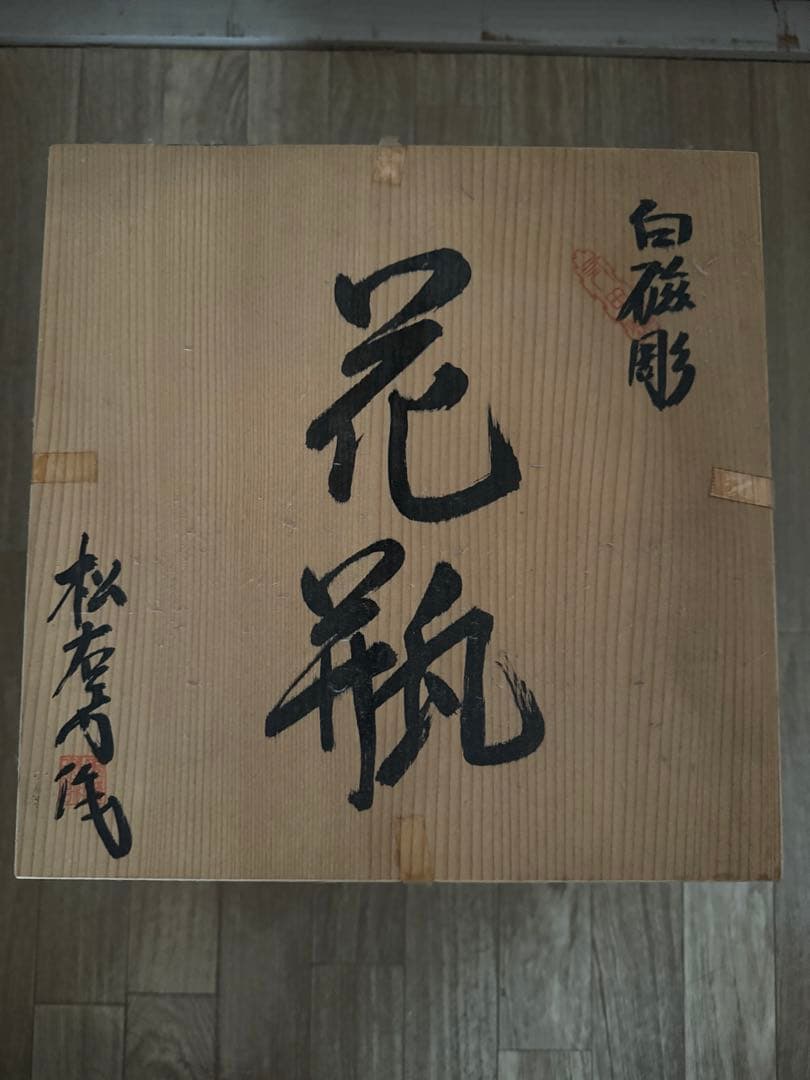 白磁彫
花瓶
松右エ門作